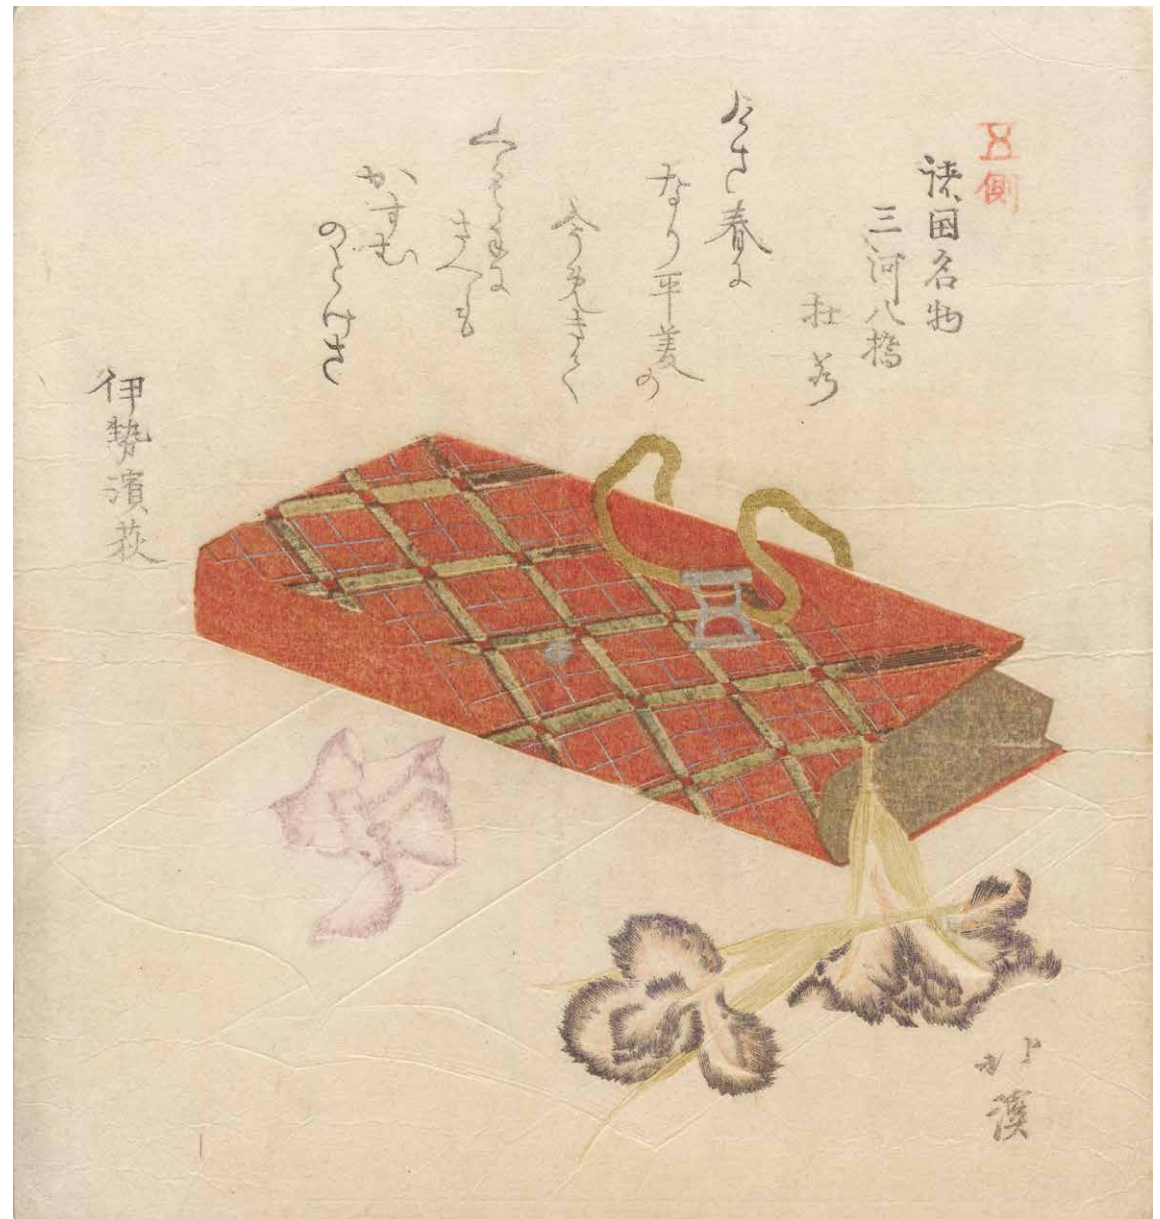 五側
諸国名物
三河八橋
杜若
けさ春に
なり平菱の
今めきて
くも手に
さへも
かすむ
のどけさ
伊勢濱荻
北溪